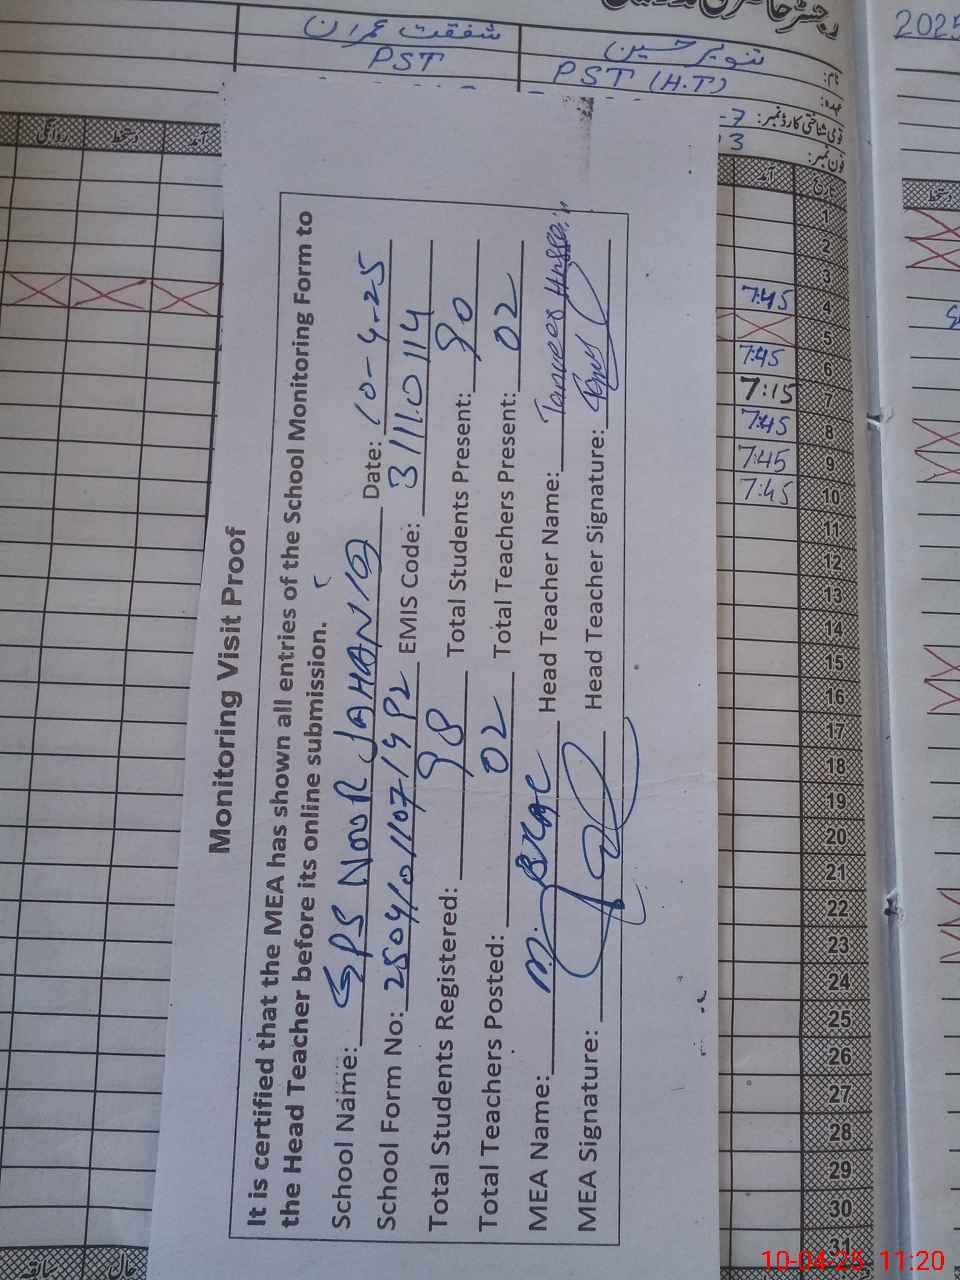 رجسٹر حاضری
2025
شفقت عمران
تنویر حسین
نام:
PST
PST (H.T)
عہدہ:
قومی شناختی کارڈ نمبر:
-7
فون نمبر:
13
روانگی
دستخط
آمد
آمد
تاریخ
دستخط
1
2
3
7:45 4
5
7:45 6
7:15 7
7:45 8
7:45 9
7:45 10
11
12
13
14
15
16
17
18
19
20
21
22
23
24
25
26
27
28
29
30
31
سابقہ
حال
Monitoring Visit Proof
It is certified that the MEA has shown all entries of the School Monitoring Form to
the Head Teacher before its online submission.
School Name: GPS NOOR JAHANIA Date: 10-4-25
School Form No: EMIS Code: 31110114
Total Students Registered: 98 Total Students Present: 90
Total Teachers Posted: 02 Total Teachers Present: 02
MEA Name: M. Head Teacher Name: Tanveer Hussain
MEA Signature: Head Teacher Signature:
10-04-25 11:20